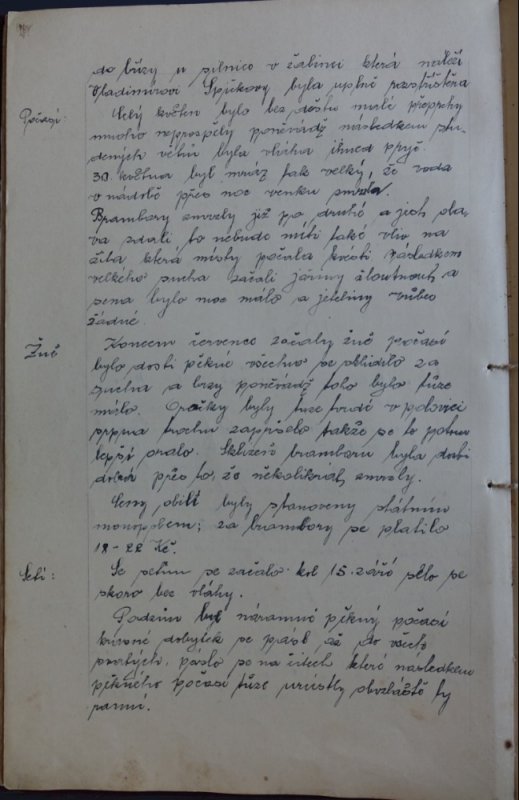 do břízy u silnice v žabinci která náleží
Vladimírovi Špičkovy byla uplně rozstříštěna
Počasí:
Celý květen bylo bez deště malé přeprchy
mnoho neprospěly poněvadž následkem stu-
dených větrů byla vláha ihned pryč.
30 května byl mráz tak velký, že voda
v nádobě přes noc venku smrzla.
Brambory zmrzly již po druhé a jest oba-
va zdali to nebude míti také vliv na
žita která místy počala kvésti následkem
velkého sucha začali jařiny žloutnout a
sena bylo moc málo a jeteliny vůbec
žádné.
Žně
Koncem července začaly žně počasí
bylo dosti pěkné všechno se sklidilo za
sucha a brzy poněvadž toho bylo tůze
málo. Oračky byly tuze tvrdé v polovici
srpna trochu zapršelo takže se to potom
lepší oralo. Sklizeň bramborů byla dosti
dobrá přes to, že několikrát zmrzly.
Ceny obilí byly stanoveny státním
monopolem; za brambory se platilo
18-22 Kč.
Setí:
Se setím se začalo kol 15. září selo se
skoro bez vláhy.
Podzim byl náramně pěkný počasí
krásné dobytek se pásl až do všech
svatých, páslo se na žitech které následkem
pěkného počasí tůze urůstly obzvláště ty
ranní.